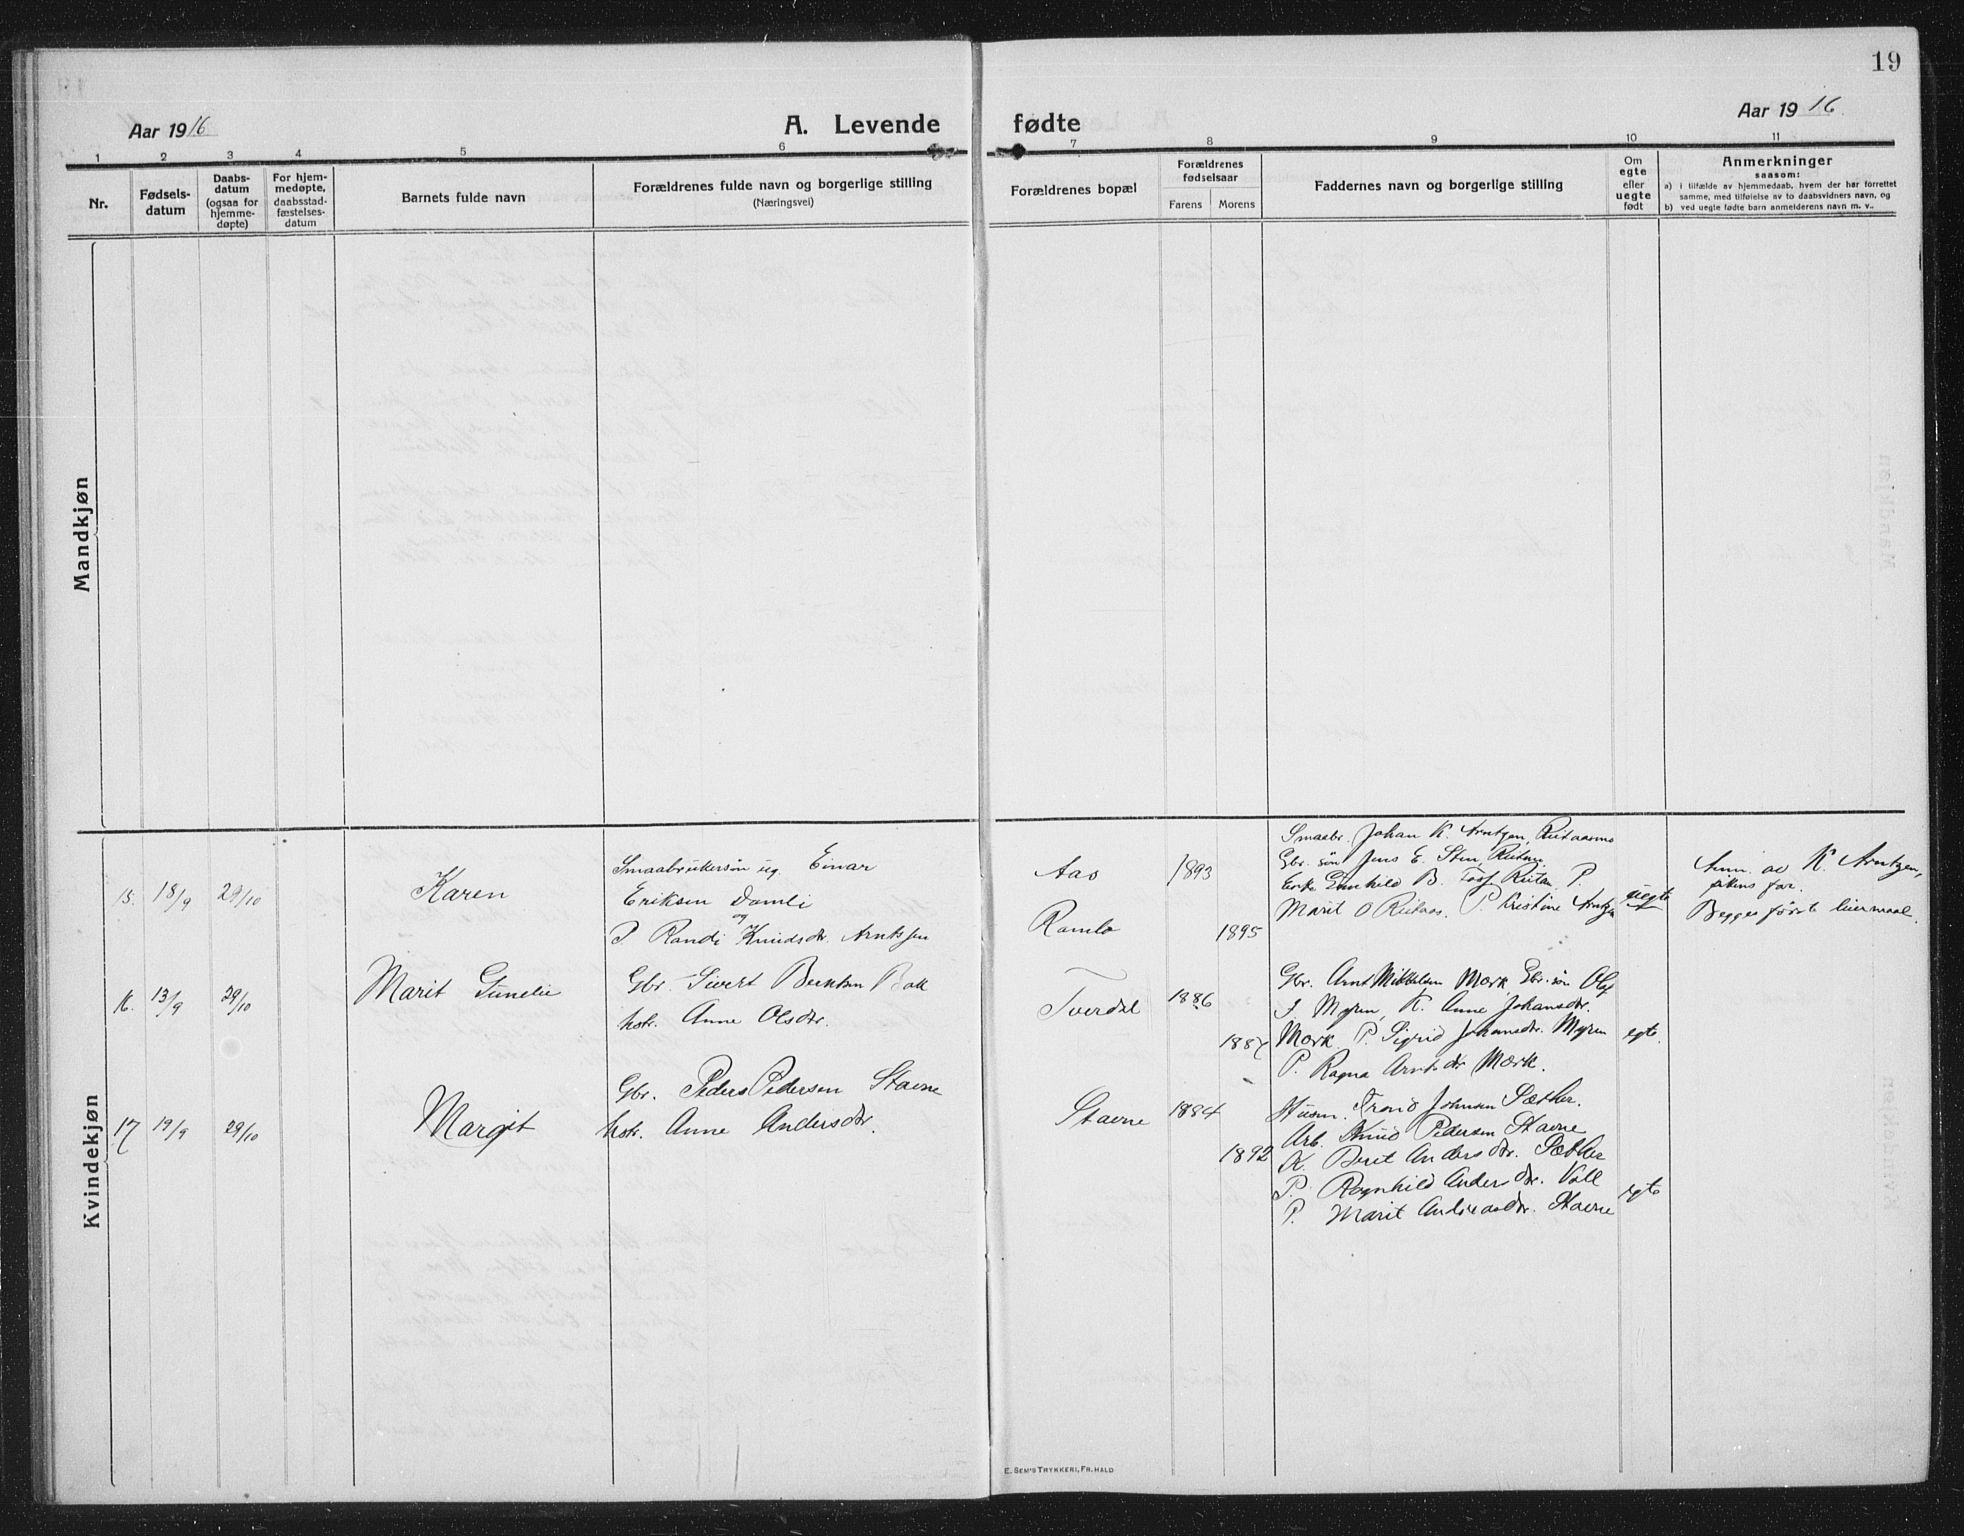 19
Aar 1916
A. Levende fødte
Aar 1916.
1 2 3 4 5 6 7 8 9 10 11
Nr.
Fødsels-
datum
Daabs-
datum
(ogsaa for
hjemme-
døpte)
For hjem-
medøpte,
daabsstad-
fæstelses-
datum
Barnets fulde navn
Forældrenes fulde navn og borgerlige stilling
(Næringsvei)
Forældrenes bopæl
Forældrenes
fødselsaar
Farens Morens
Faddernes navn og borgerlige stilling
Om
egte
eller
uegte
født
Anmerkninger
saasom:
a) i tilfælde av hjemmedaab, hvem der har forrettet
samme, med tilføielse av to daabsvidners navn, og
b) ved uegte fødte barn anmelderens navn m. v.
Mandkjøn
Kvindekjøn
15. 18/9 29/10
Karen
Smaabrukersøn ug. Einar
Eriksen Damli
og
P. Randi Knudsdr. Arntssen
Aas
Ramlo
1893
1895
Smaabr. Johan K. Arntzen,
Gbr. søn Jens E. Sten,
B. P.
Marit O P. Kristine Arntzen
uegte
Anm. av K. Arntzen,
pikens far.
Begges første leiermaal.
16. 13/9 29/10
Marit Gunelie
Gbr. Sivert Bakk
hstr. Anne Olsdtr.
Tverdal
1886
188
Gbr. Arnt Mikkelsen Mork Gbr. søn Ole
J. Myren, K. Anne Johansdtr.
Mork. P. Sigrid Johansdtr. Myren
P. Ragna Arntsdtr Mork.
egte.
17 19/9 29/10
Margit
Gbr. Peder Pedersen Stavne
hstr. Anne Andersdtr.
Stavne
1884
1892
Husm. Trond Johnsen Sæther.
Arb. Knud Pedersen Stavne
K. Beret Andersdtr. Sæther
P. Ragnhild Andersdtr. Voll
P. Marit Andreasdtr. Stavne
egte
E. SEM'S TRYKKERI, FR. HALD